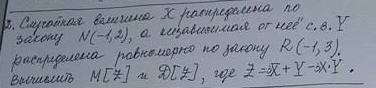 2. Случайная величина X распределена по
закону N(-1,2), а независимая от неё с.в. Y
распределена равномерно по закону R(-1,3).
Вычислить M[Z] и D[Z], где Z=3X+Y-3X·Y.